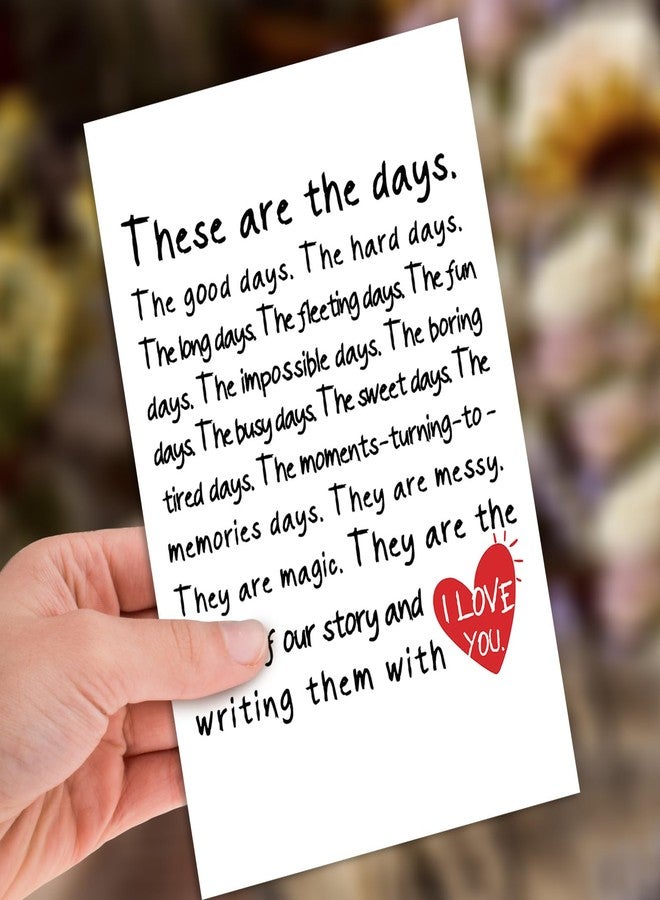 These are the days.
The good days. The hard days.
The long days. The fleeting days. The fun
days. The impossible days. The boring
days. The busy days. The sweet days. The
tired days. The moments-turning-to-
memories days. They are messy.
They are magic. They are the
f our story and
writing them with
I LOVE
YOU.